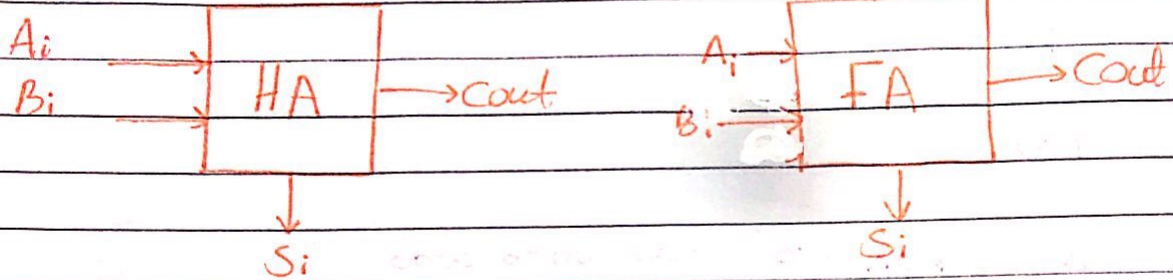 Ai
Bi
HA
Cout
Si
Ai
Bi
FA
Cout
Si